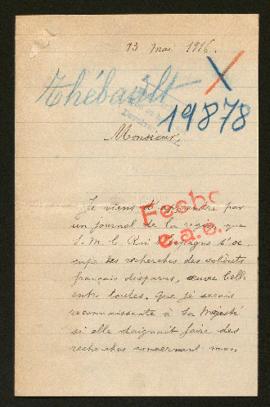 13 mai 1916.
Thébault
19878
Monsieur,
Je viens d'apprendre par
un journal de la région que
S. M. le Roi d'Espagne s'oc-
cupe des recherches des soldats
français disparus, œuvre belle
entre toutes, que je serais
reconnaissante à Sa Majesté
si elle daignait faire des
recherches concernant mon
Fecho